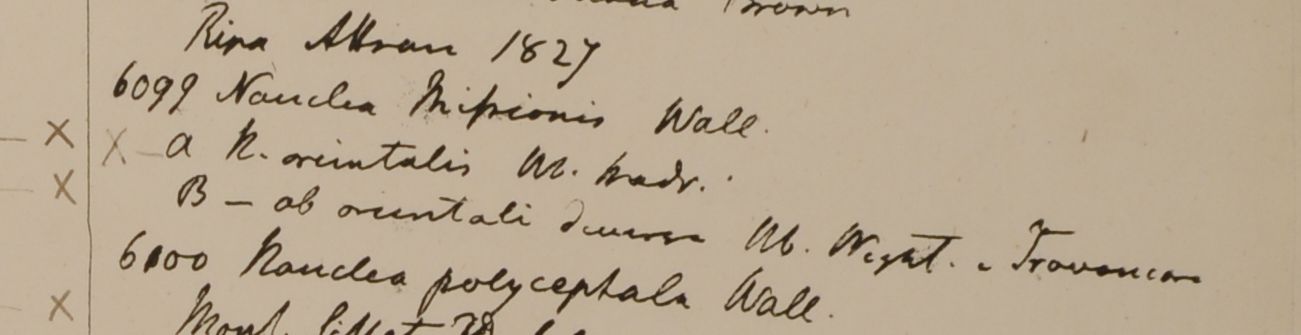 Brown
Ripa Attran 1827
6099 Nauclea Missionis Wall.
a N. orientalis M. Madr.
B – ab orientali diversa M. Wight. e Travancor
6100 Nauclea polycephala Wall.
Mont. Sillet